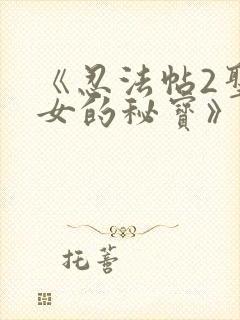 《忍法帖2聖
女的秘寶》
托薈